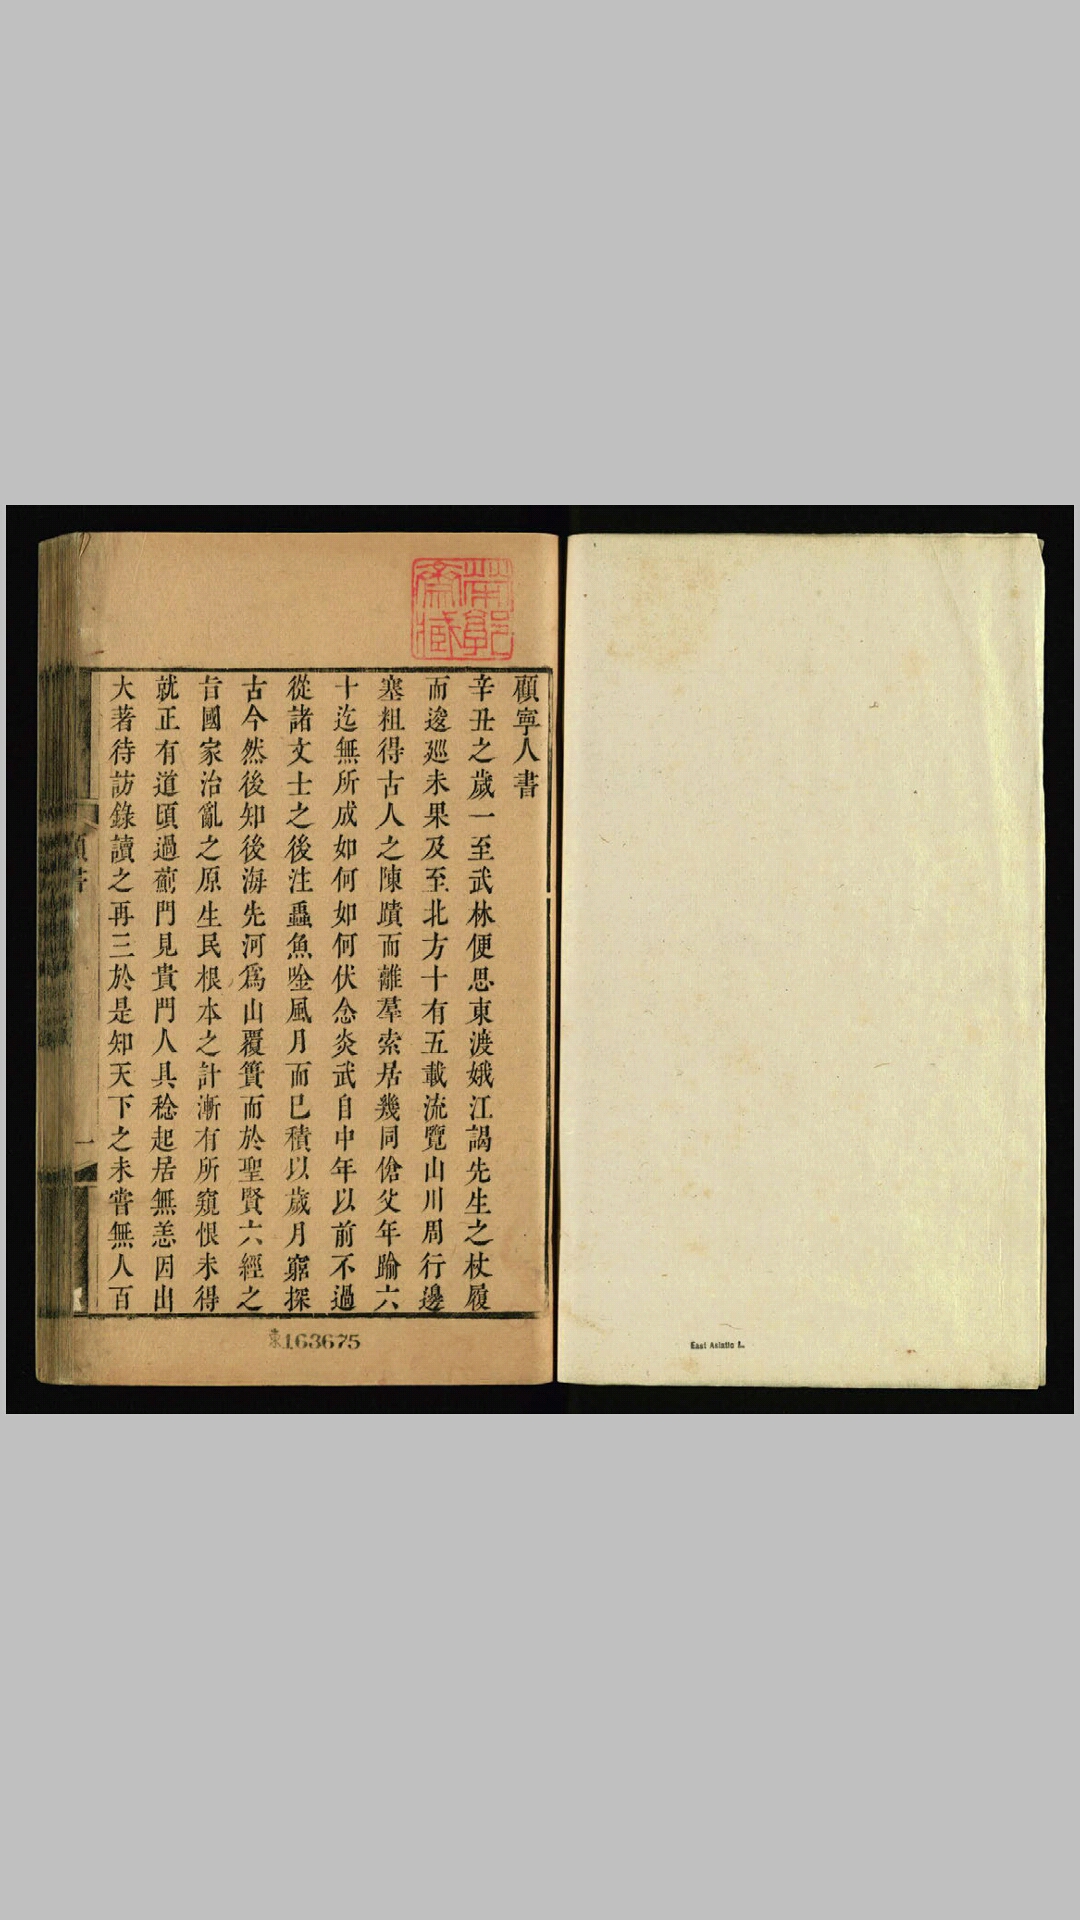 顧寧人書
辛丑之歲一至武林便思東渡娥江謁先生之杖履
而逡廵未果及至北方十有五載流覽山川周行邊
塞粗得古人之陳蹟而離羣索居幾同傖父年踰六
十迄無所成如何如何伏念炎武自中年以前不過
從諸文士之後注蟲魚唫風月而已積以歲月窮探
古今然後知後海先河爲山覆簣而於聖賢六經之
旨國家治亂之原生民根本之計漸有所窺恨未得
就正有道頃過薊門見貴門人具稔起居無恙因出
大著待訪錄讀之再三於是知天下之未嘗無人百
一
東163675
East Asiatic L.